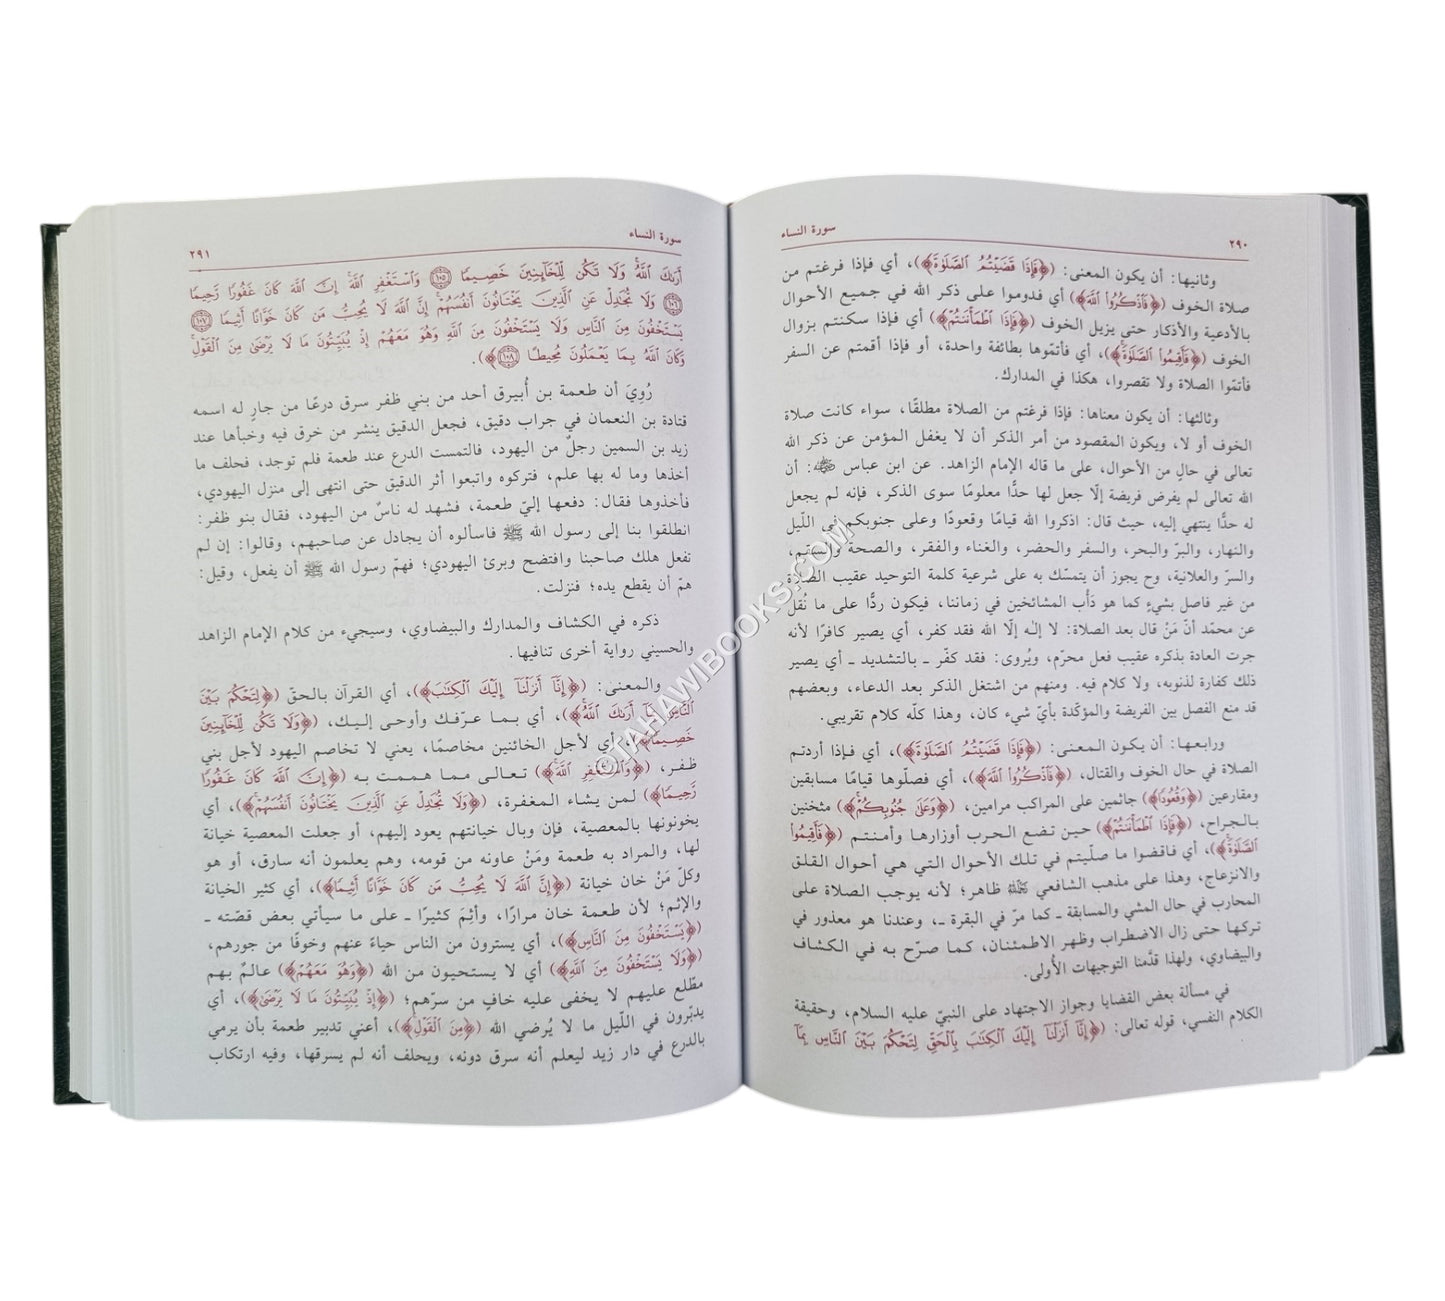 ٢٩٠
سورة النساء
وثانيها: أن يكون المعنى: (﴿فَإِذَا قَضَيْتُمُ الصَّلَوٰةَ﴾)، أي فإذا فرغتم من
صلاة الخوف (﴿فَاذْكُرُوا اللَّهَ﴾) أي فدوموا على ذكر الله في جميع الأحوال
بالأدعية والأذكار حتى يزيل الخوف (﴿فَإِذَا اطْمَأْنَنتُمْ﴾) أي فإذا سكنتم بزوال
الخوف (﴿فَأَقِيمُوا الصَّلَوٰةَ﴾)، أي فأتمّوها بطائفة واحدة، أو فإذا أقمتم عن السفر
فأتمّوا الصلاة ولا تقصروا، هكذا في المدارك.
وثالثها: أن يكون معناها: فإذا فرغتم من الصلاة مطلقًا، سواء كانت صلاة
الخوف أو لا، ويكون المقصود من أمر الذكر أن لا يغفل المؤمن عن ذكر الله
تعالى في حالٍ من الأحوال، على ما قاله الإمام الزاهد. عن ابن عباس: أن
الله تعالى لم يفرض فريضة إلّا جعل لها حدًّا معلومًا سوى الذكر، فإنه لم يجعل
له حدًّا ينتهي إليه، حيث قال: اذكروا الله قيامًا وقعودًا وعلى جنوبكم في اللّيل
والنهار، والبرّ والبحر، والسفر والحضر، والغناء والفقر، والصحة والسقم،
والسرّ والعلانية، وح يجوز أن يتمسّك به على شرعية كلمة التوحيد عقيب الصلاة
من غير فاصل بشيءٍ كما هو دَأب المشائخين في زماننا، فيكون ردًّا على ما نُقل
عن محمّد أنّ مَنْ قال بعد الصلاة: لا إلـه إلّا الله فقد كفر، أي يصير كافرًا لأنه
جرت العادة بذكره عقيب فعل محرّم، ويُروى: فقد كفّر ـ بالتشديد ـ أي يصير
ذلك كفارة لذنوبه، ولا كلام فيه. ومنهم من اشتغل الذكر بعد الدعاء، وبعضهم
قد منع الفصل بين الفريضة والمؤكّدة بأيّ شيء كان، وهذا كلّه كلام تقريبي.
ورابعها: أن يكون المعنى: (﴿فَإِذَا قَضَيْتُمُ الصَّلَوٰةَ﴾)، أي فإذا أردتم
الصلاة في حال الخوف والقتال، (﴿فَاذْكُرُوا اللَّهَ﴾)، أي فصلّوها قيامًا مسابقين
ومقارعين (﴿وَقُعُودًا﴾) جاثمين على المراكب مرامين، (﴿وَعَلَىٰ جُنُوبِكُمْ﴾) مثخنين
بالجراح، (﴿فَإِذَا اطْمَأْنَنتُمْ﴾) حين تضع الحرب أوزارها وأمنتم (﴿فَأَقِيمُوا
الصَّلَوٰةَ﴾)، أي فاقضوا ما صلّيتم في تلك الأحوال التي هي أحوال القلق
والانزعاج، وهذا على مذهب الشافعي ظاهر؛ لأنه يوجب الصلاة على
المحارب في حال المشي والمسابقة ـ كما مرّ في البقرة ـ، وعندنا هو معذور في
تركها حتى زال الاضطراب وظهر الاطمئنان، كما صرّح به في الكشاف
والبيضاوي، ولهذا قدَّمنا التوجيهات الأُولى.
في مسألة بعض القضايا وجواز الاجتهاد على النبيّ عليه السلام، وحقيقة
الكلام النفسي، قوله تعالى: (﴿إِنَّا أَنزَلْنَا إِلَيْكَ الْكِتَٰبَ بِالْحَقِّ لِتَحْكُمَ بَيْنَ النَّاسِ بِمَا
سورة النساء
٢٩١
أَرَىٰكَ اللَّهُ وَلَا تَكُن لِّلْخَائِنِينَ خَصِيمًا ١٠٥ وَاسْتَغْفِرِ اللَّهَ إِنَّ اللَّهَ كَانَ غَفُورًا رَّحِيمًا
١٠٦ وَلَا تُجَٰدِلْ عَنِ الَّذِينَ يَخْتَانُونَ أَنفُسَهُمْ إِنَّ اللَّهَ لَا يُحِبُّ مَن كَانَ خَوَّانًا أَثِيمًا ١٠٧
يَسْتَخْفُونَ مِنَ النَّاسِ وَلَا يَسْتَخْفُونَ مِنَ اللَّهِ وَهُوَ مَعَهُمْ إِذْ يُبَيِّتُونَ مَا لَا يَرْضَىٰ مِنَ الْقَوْلِ
وَكَانَ اللَّهُ بِمَا يَعْمَلُونَ مُحِيطًا ١٠٨﴾).
رُوِيَ أن طعمة بن أُبيرق أحد من بني ظفر سرق درعًا من جارٍ له اسمه
قتادة بن النعمان في جراب دقيق، فجعل الدقيق ينشر من خرق فيه وخبأها عند
زيد بن السمين رجلٌ من اليهود، فالتمست الدرع عند طعمة فلم توجد، فحلف ما
أخذها وما له بها علم، فتركوه واتبعوا أثر الدقيق حتى انتهى إلى منزل اليهودي،
فأخذوها فقال: دفعها إليّ طعمة، فشهد له ناسٌ من اليهود، فقال بنو ظفر:
انطلقوا بنا إلى رسول الله ﷺ فاسألوه أن يجادل عن صاحبهم، وقالوا: إن لم
تفعل هلك صاحبنا وافتضح وبرئ اليهودي؛ فهمّ رسول الله ﷺ أن يفعل، وقيل:
همّ أن يقطع يده؛ فنزلت.
ذكره في الكشاف والمدارك والبيضاوي، وسيجيء من كلام الإمام الزاهد
والحسيني رواية أخرى تنافيها.
والمعنى: (﴿إِنَّا أَنزَلْنَا إِلَيْكَ الْكِتَٰبَ﴾)، أي القرآن بالحقّ (﴿لِتَحْكُمَ بَيْنَ
النَّاسِ بِمَا أَرَىٰكَ اللَّهُ﴾)، أي بما عرّفك وأوحى إليك، (﴿وَلَا تَكُن لِّلْخَائِنِينَ
خَصِيمًا﴾) أي لأجل الخائنين مخاصمًا، يعني لا تخاصم اليهود لأجل بني
ظفر، (﴿وَاسْتَغْفِرِ اللَّهَ﴾) تعالى مما هممت به (﴿إِنَّ اللَّهَ كَانَ غَفُورًا
رَّحِيمًا﴾) لمن يشاء المغفرة، (﴿وَلَا تُجَٰدِلْ عَنِ الَّذِينَ يَخْتَانُونَ أَنفُسَهُمْ﴾)، أي
يخونونها بالمعصية، فإن وبال خيانتهم يعود إليهم، أو جعلت المعصية خيانة
لها، والمراد به طعمة ومَنْ عاونه من قومه، وهم يعلمون أنه سارق، أو هو
وكلّ مَنْ خان خيانة (﴿إِنَّ اللَّهَ لَا يُحِبُّ مَن كَانَ خَوَّانًا أَثِيمًا﴾)، أي كثير الخيانة
والإثم؛ لأن طعمة خان مرارًا، وأثِمَ كثيرًا ـ على ما سيأتي بعض قصّته ـ
(﴿يَسْتَخْفُونَ مِنَ النَّاسِ﴾)، أي يسترون من الناس حياءً عنهم وخوفًا من جورهم،
(﴿وَلَا يَسْتَخْفُونَ مِنَ اللَّهِ﴾) أي لا يستحيون من الله (﴿وَهُوَ مَعَهُمْ﴾) عالمٌ بهم
مطّلع عليهم لا يخفى عليه خافٍ من سرّهم؛ (﴿إِذْ يُبَيِّتُونَ مَا لَا يَرْضَىٰ﴾)، أي
يدبّرون في اللّيل ما لا يُرضي الله (﴿مِنَ الْقَوْلِ﴾)، أعني تدبير طعمة بأن يرمي
بالدرع في دار زيد ليعلم أنه سرق دونه، ويحلف أنه لم يسرقها، وفيه ارتكاب
©TAHAWIBOOKS.COM